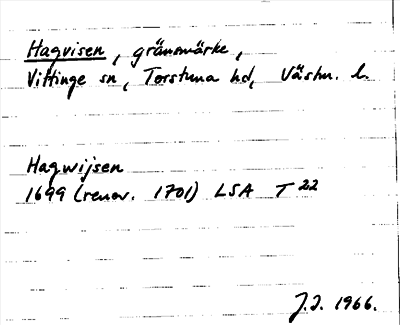 Hagvisen, gränsmärke,
Vittinge sn, Torstuna hd, Västm. l.
Hagwijsen
1699 (renov. 1701) LSA T 22
J.I. 1966.